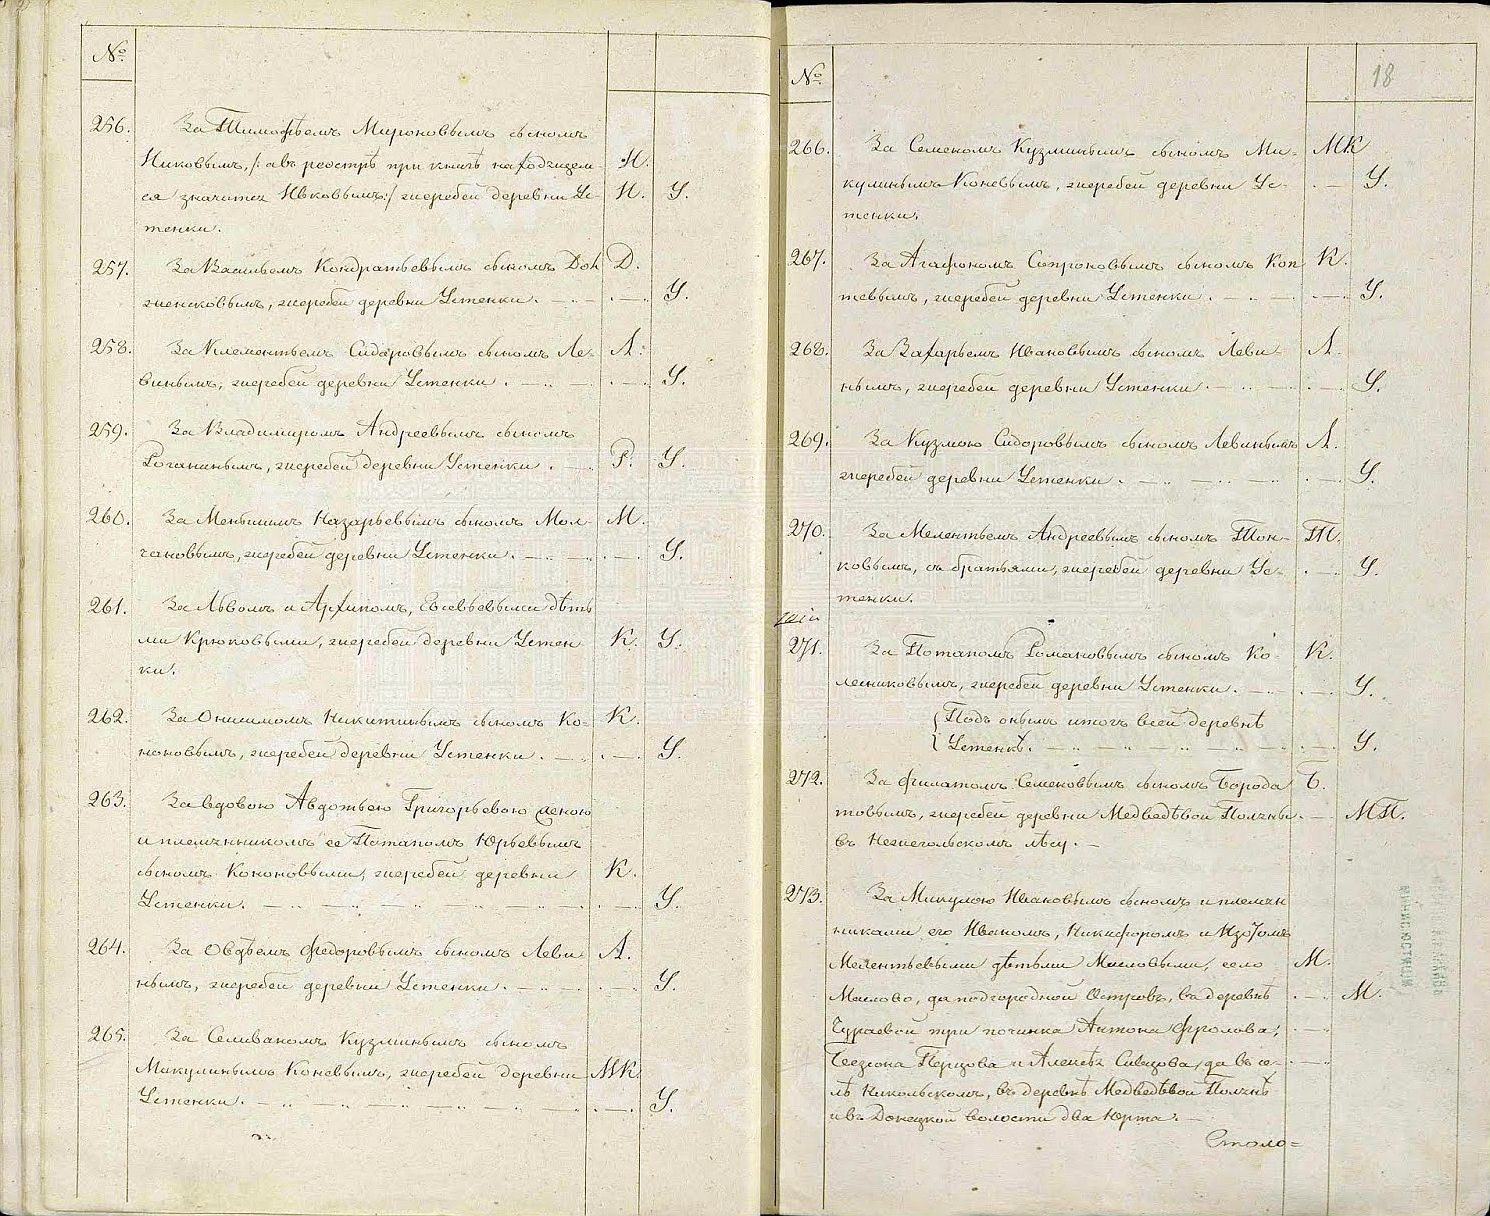 №
256. За Тимофѣемъ Мироновымъ сыномъ
Никовымъ, /: а въ реестрѣ при книгѣ находящем- Н.
ся значится Ивковымъ :/ жеребей деревни Ус- И. У.
тенки.
257. За Васильемъ Кондратьевымъ сыномъ Дол Д.
женковымъ, жеребей деревни Устенки. У.
258. За Клементьемъ Сидоровымъ сыномъ Ле- Л.
винымъ, жеребей деревни Устенки. У.
259. За Владимиромъ Андреевымъ сыномъ
Рогачинымъ, жеребей деревни Устенки. Р. У.
260. За Меншимъ Назарьевымъ сыномъ Мол- М.
чановымъ, жеребей деревни Устенки. У.
261. За Львомъ и Архипомъ, Евсевьевыми дѣть
ми Крюковыми, жеребей деревни Устен К. У.
ки.
262. За Онисимомъ Никитинымъ сыномъ Ко- К.
ноновымъ, жеребей деревни Устенки. У.
263. За вдовою Авдотьею Григорьевою женою
и племянникомъ ее Потапомъ Юрьевымъ
сыномъ Кононовыми, жеребей деревни К.
Устенки. У.
264. За Овдѣемъ Федоровымъ сыномъ Леви Л.
нымъ, жеребей деревни Устенки. У.
265. За Селиваномъ Кузминымъ сыномъ
Микулинымъ Коневымъ, жеребей деревни МК.
Устенки. У.
№ 18
266. За Семеномъ Кузминымъ сыномъ Ми- МК
кулинымъ Коневымъ, жеребей деревни Ус- У.
тенки.
267. За Агафономъ Сопроновымъ сыномъ Коп К.
тевымъ, жеребей деревни Устенки. У.
268. За Захарьемъ Ивановымъ сыномъ Леви- Л.
нымъ, жеребей деревни Устенки. У.
269. За Кузмою Сидоровымъ сыномъ Левинымъ Л.
жеребей деревни Устенки. У.
270. За Мелентьемъ Андреевымъ сыномъ Тон- Т.
ковымъ, съ братьями, жеребей деревни Ус- У.
тенки.
271. За Потапомъ Романовымъ сыномъ Ко- К.
лесниковымъ, жеребей деревни Устенки. У.
Подъ онымъ итогъ всей деревнѣ
Устенкѣ. У.
272. За Филатомъ Семеновымъ сыномъ Борода Б.
товымъ, жеребей деревни Медведѣвой Полчны МП.
въ Нежегольскомъ лѣсу.
273. За Микулою Ивановымъ сыномъ и племян
никами его Иваномъ, Никифоромъ и Изотомъ
Мелентьевыми дѣтьми Масловыми, село М.
Маслово, да подгородной Островъ, въ деревнѣ М.
Чураевой три починка Антона Фролова,
Перцова и Алексѣя да въ се-
лѣ Никольскомъ, въ деревнѣ Медведѣвой Полчнѣ
и въ Донецкой волости два Юрта.
Столо=